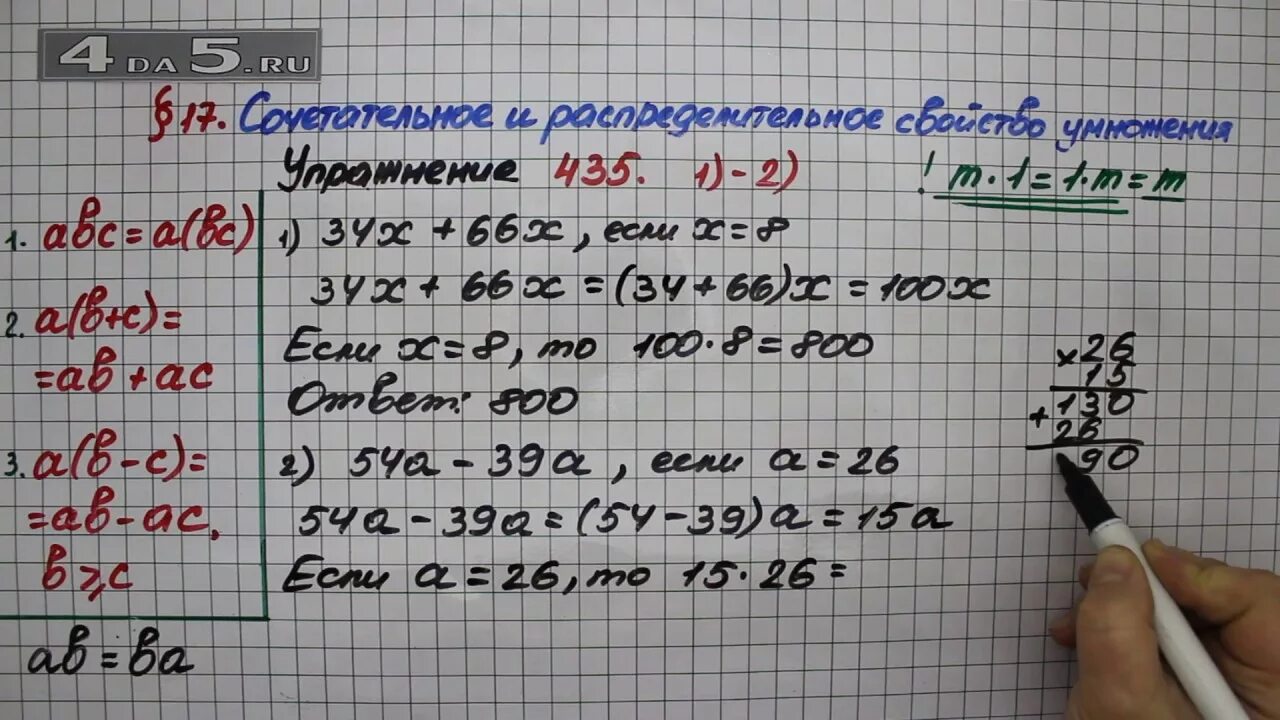 4DA5.RU
§17. Сочетательное и распределительное свойство умножения
Упражнение 435. 1)-2)
! m·1=1·m=m
1. aвc=a(вc)
2. a(в+c)=
=aв+ac
3. a(в-c)=
=aв-ac,
в⩾c
aв=вa
1) 34x+66x, если x=8
34x+66x=(34+66)x=100x
Если x=8, то 100·8=800
Ответ: 800
2) 54a-39a, если a=26
54a-39a=(54-39)a=15a
Если a=26, то 15·26=
×26
15
+130
26
90